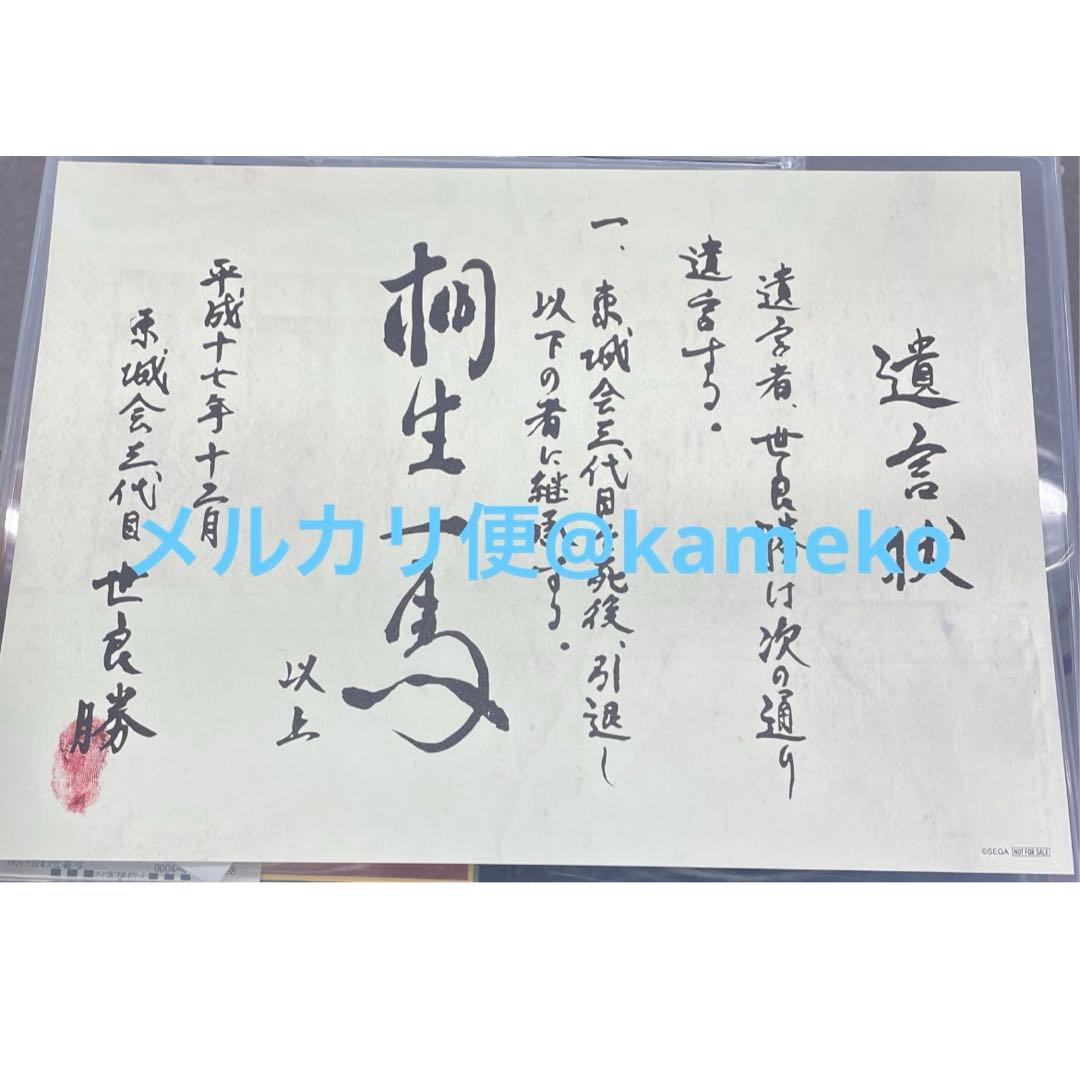 遺言状
遺言者、世良勝は次の通り
遺言する。
一、東城会三代目の死後、引退し
以下の者に継承する。
桐生一馬
以上
平成十七年十二月
東城会三代目 世良勝
メルカリ便@kameko
©SEGA NOT FOR SALE
0004-